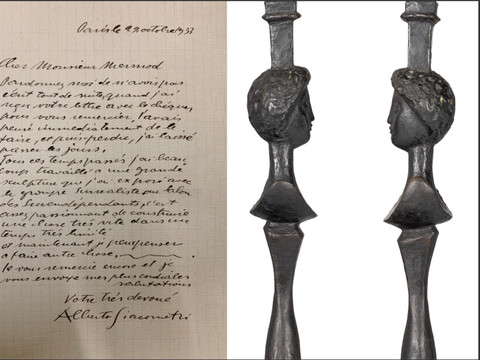 Paris le 29 octobre 1937
Cher Monsieur Mermod
Pardonnez moi de n'avois pas
écrit tout de suite, quand j'ai
reçu votre lettre avec le chèque,
pour vous remercier, j'avais
pensé immédiatement de le
faire, et puis perdre, j'ai laissé
passer les jours.
Tous ces temps passés j'ai beau
coup travaillé a une grande
sculpture que j'ai exposé avec
le groupe surrealiste au Salon
des Surindépendants, c'est
assez passionnant de construire
une chose très vite dans un
temps très limité
et maintenant je peux penser
a faire autre chose,
Je vous remercie encore et je
vous envoye mes plus cordiales
salutations
Votre très devoué
Alberto Giacometti